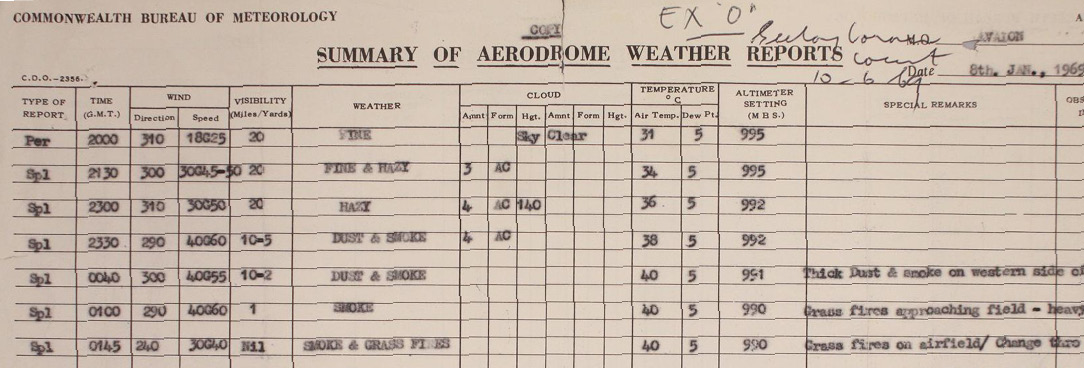 COMMONWEALTH BUREAU OF METEOROLOGY
EX "O"
COPY
A
AVALON
SUMMARY OF AERODROME WEATHER REPORTS
Court
C.D.O.—2356.
10-6-69
Date 8th. JAN., 1969
TYPE OF REPORT. TIME (G.M.T.) WIND Direction Speed VISIBILITY (Miles/Yards) WEATHER CLOUD Amnt Form Hgt. Amnt Form Hgt. TEMPERATURE °C Air Temp. Dew Pt. ALTIMETER SETTING (MBS.) SPECIAL REMARKS OBS
Per 2000 310 18G25 20 FINE Sky Clear 31 5 995
Spl 2130 300 30G45-50 20 FINE & HAZY 3 AC 34 5 995
Spl 2300 310 30G50 20 HAZY 4 AC 140 36 5 992
Spl 2330 290 40G60 10-5 DUST & SMOKE 4 AC 38 5 992
Spl 0040 300 40G55 10-2 DUST & SMOKE 40 5 991 Thick Dust & smoke on western side of
Spl 0100 290 40G60 1 SMOKE 40 5 990 Grass fires approaching field - heavy
Spl 0145 240 30G40 Nil SMOKE & GRASS FIRES 40 5 990 Grass fires on airfield/ Change thro